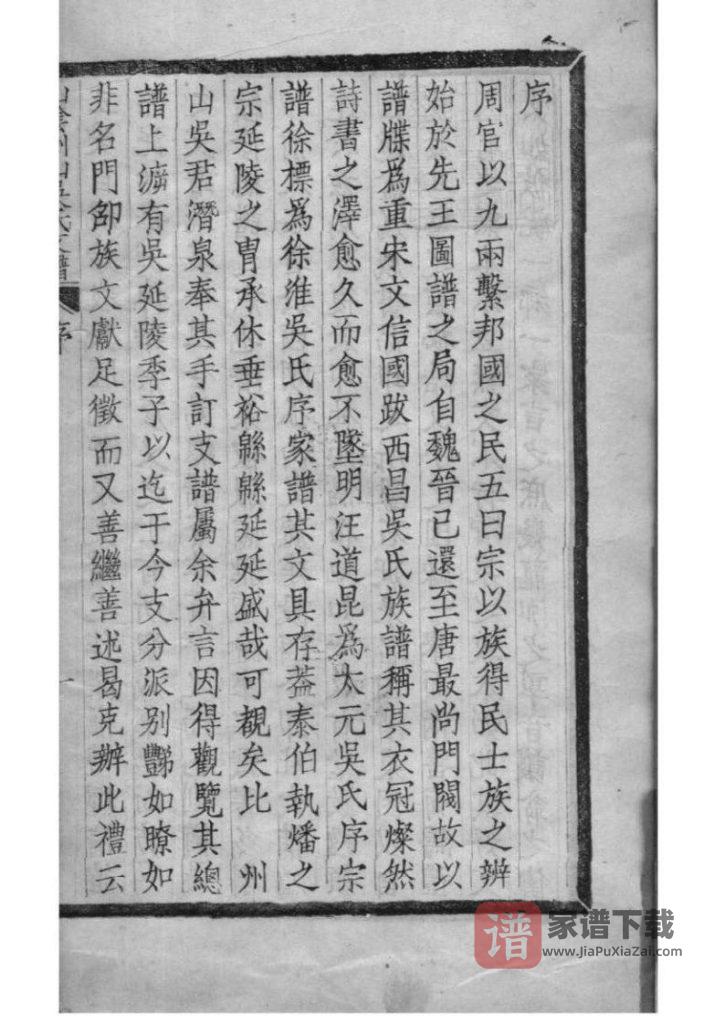 序
周官以九兩繫邦國之民五曰宗以族得民士族之辨
始於先王圖譜之局自魏晉已還至唐最尚門閥故以
譜牒爲重宋文信國跋西昌吳氏族譜稱其衣冠燦然
詩書之澤愈久而愈不墜明汪道昆爲太元吳氏序宗
譜徐標爲徐淮吳氏序家譜其文具存葢泰伯執燔之
宗延陵之胄承休垂裕緜緜延延盛哉可覩矣比 州
山吳君潛泉奉其手訂支譜屬余弁言因得觀覽其總
譜上泝有吳延陵季子以迄于今支分派别豔如瞭如
非名門卲族文獻足徵而又善繼善述曷克辦此禮云
山陰州山吳氏支譜 序 一
谱 家谱下载
www.JiaPuXiaZai.com